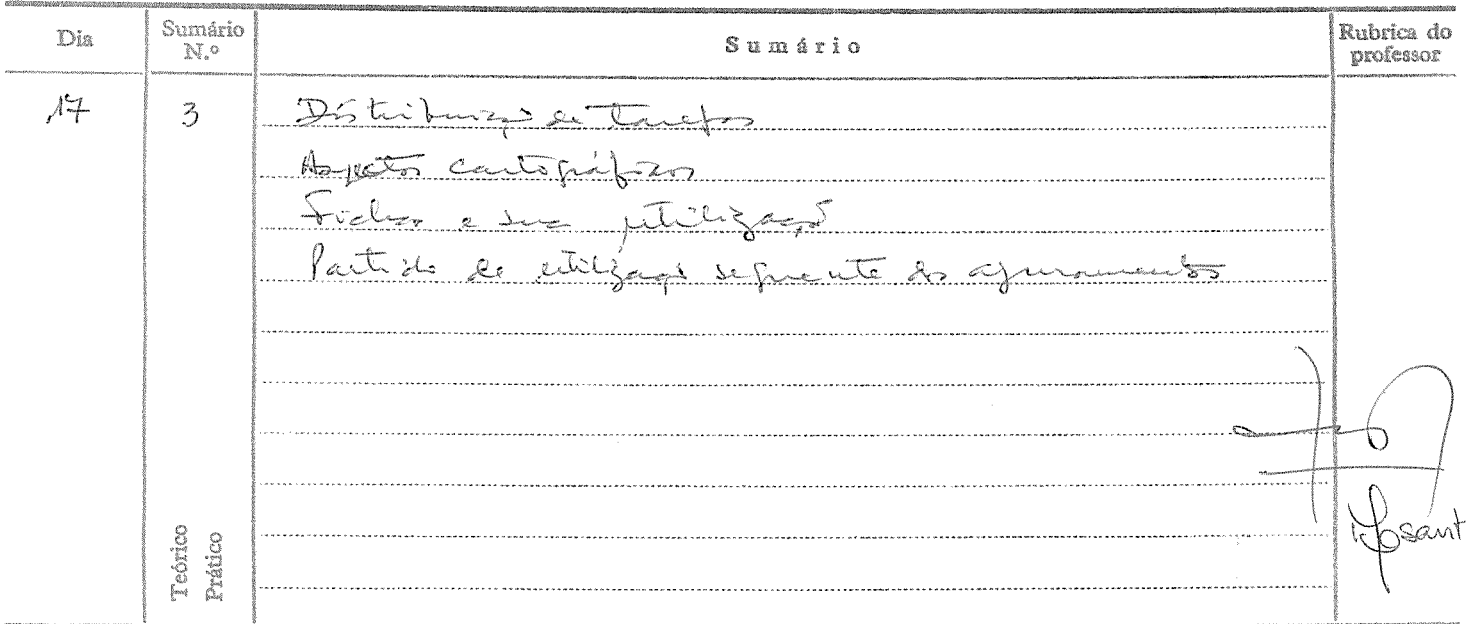 Dia
Sumário N.º
Sumário
Rubrica do professor
17
3
Distribuição de tarefas
Aspectos cartográficos
Fichas e sua utilização
Partido de utilização seguente dos apuramentos
Teórico
Prático